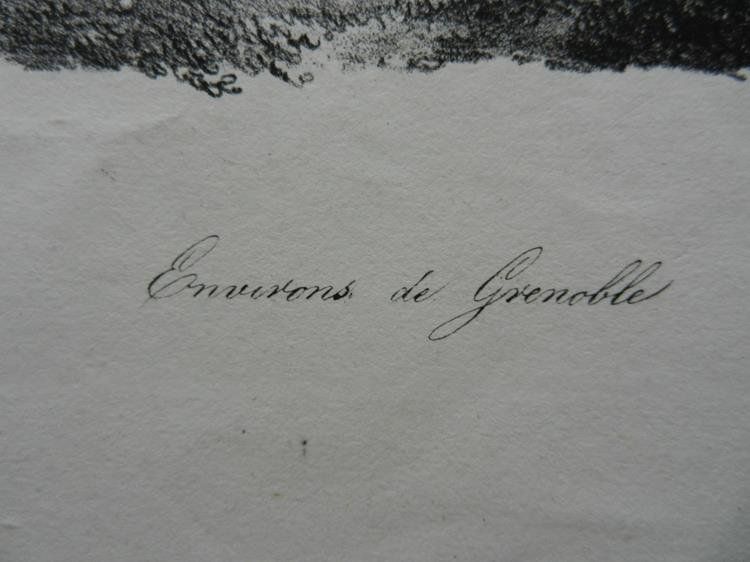 Environs de Grenoble